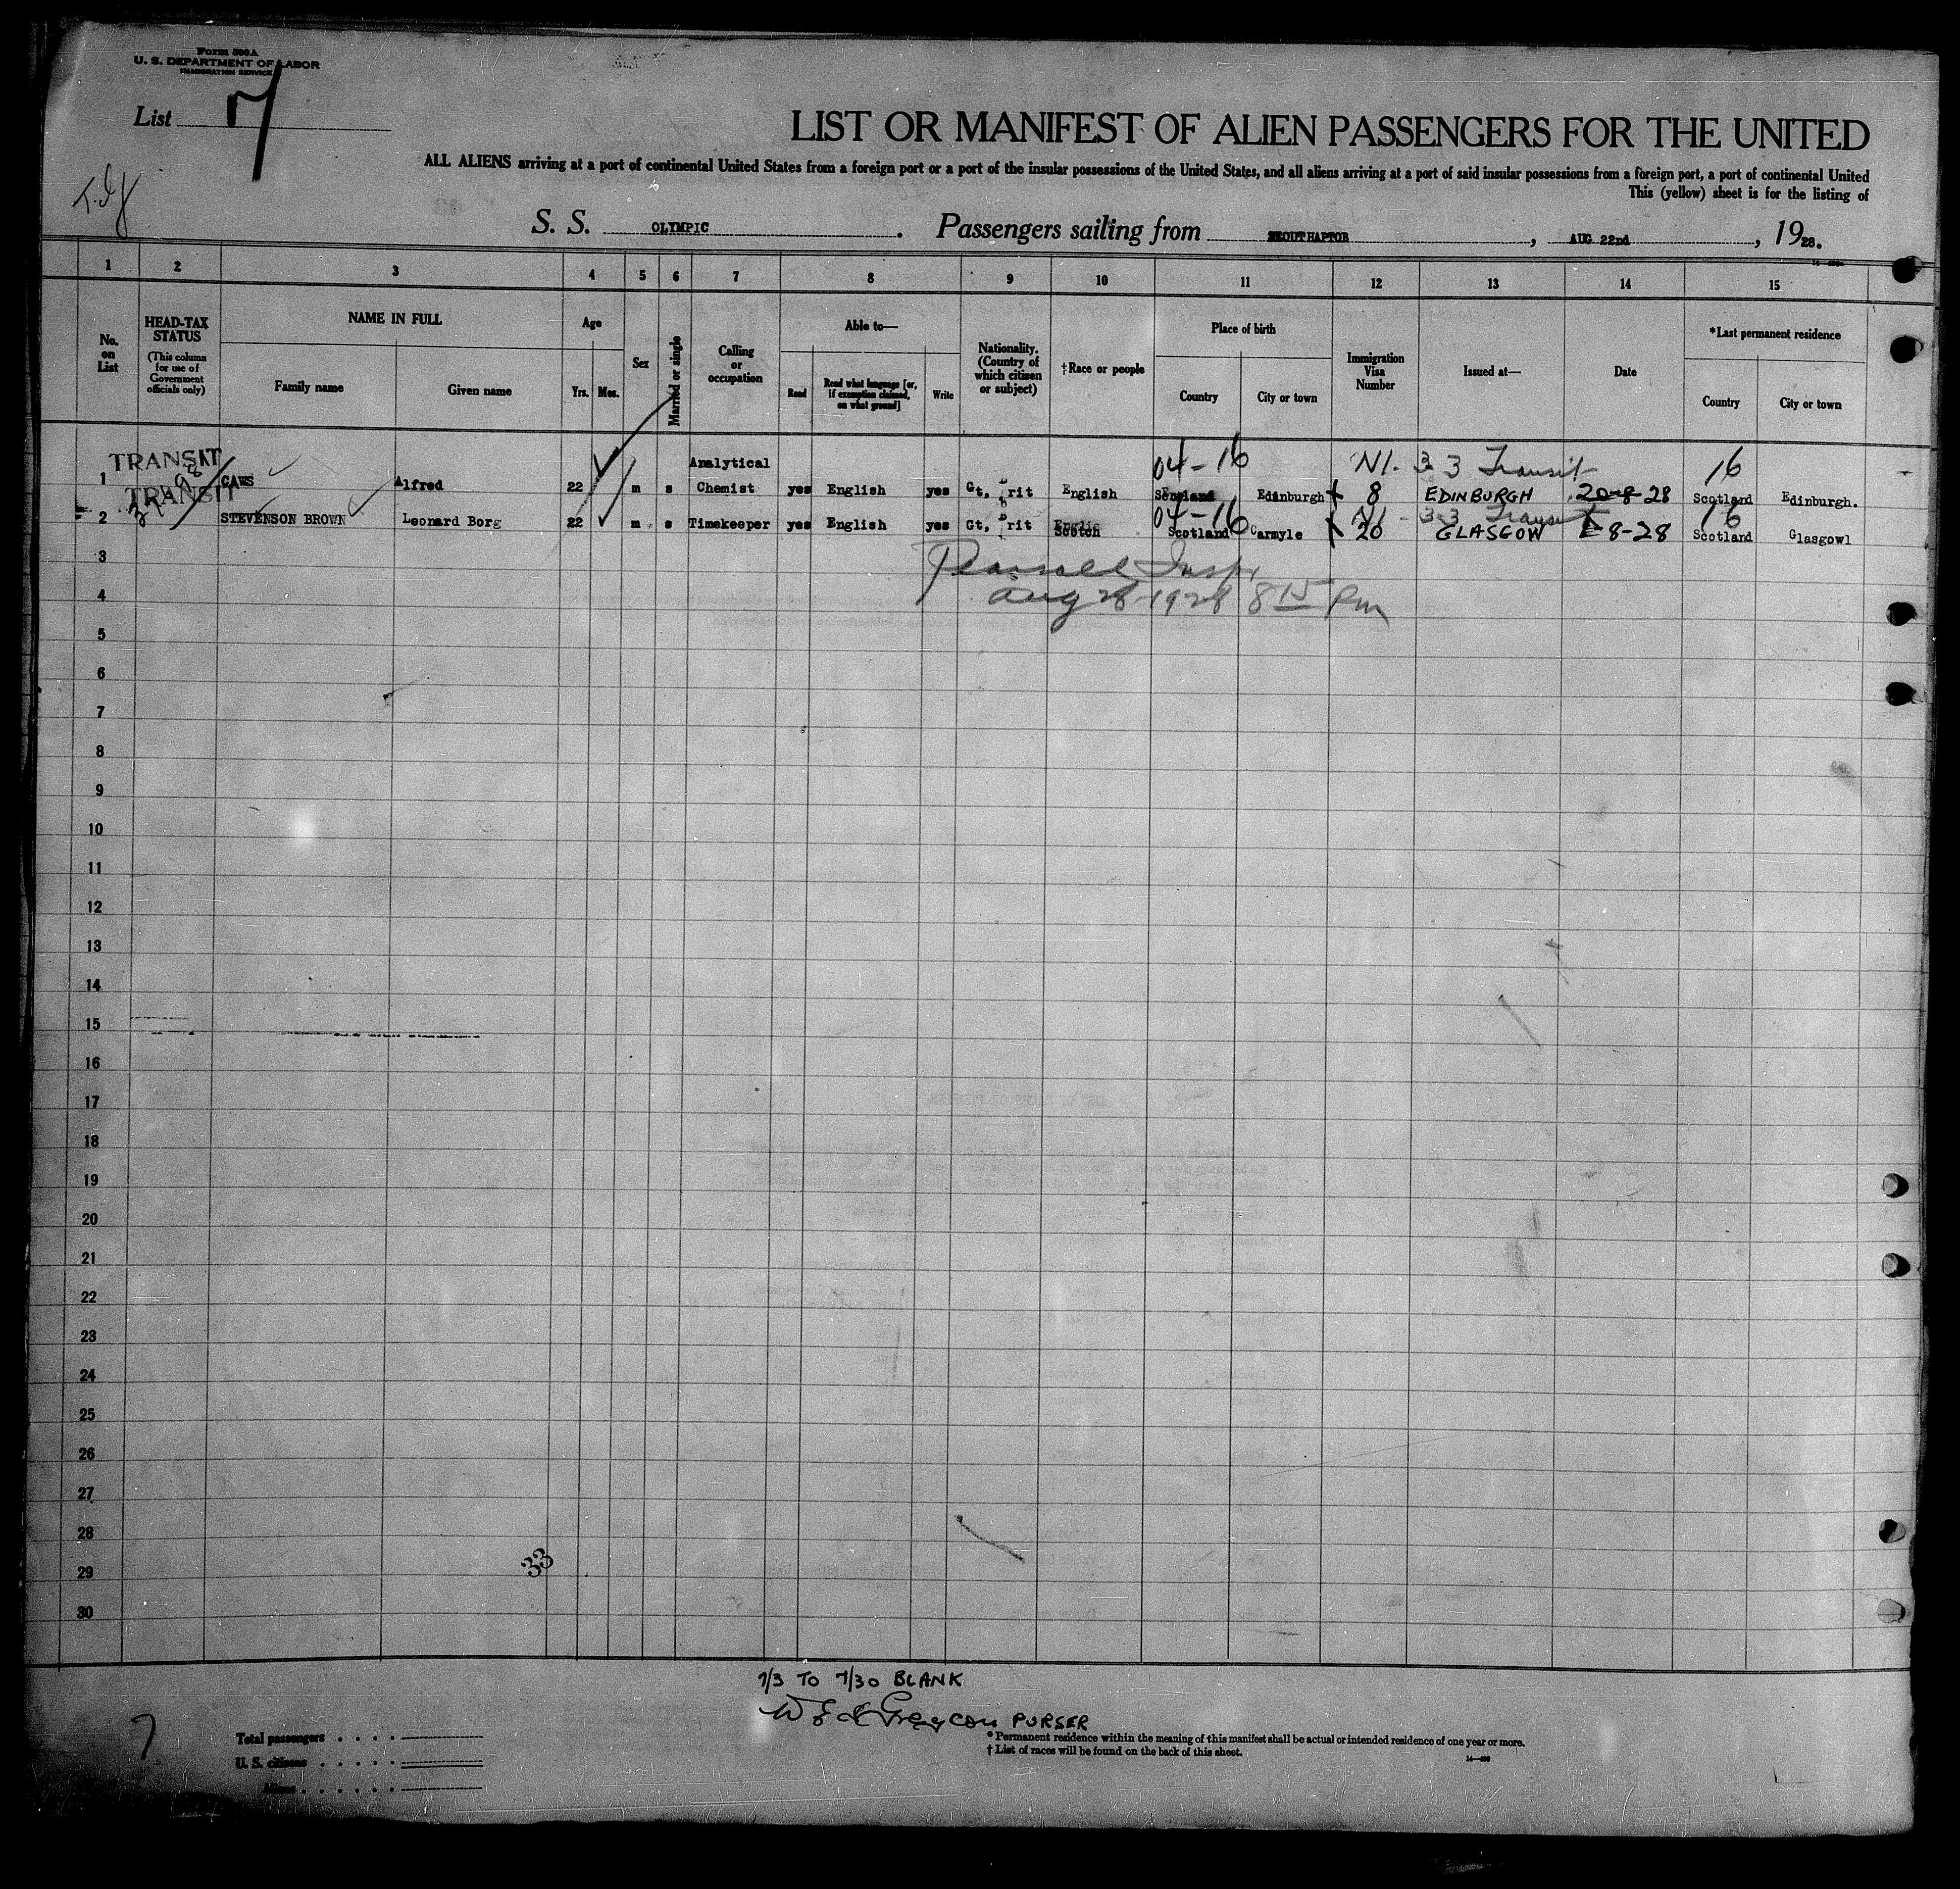 Form 500A
U. S. DEPARTMENT OF LABOR
IMMIGRATION SERVICE
List 7
LIST OR MANIFEST OF ALIEN PASSENGERS FOR THE UNITED
ALL ALIENS arriving at a port of continental United States from a foreign port or a port of the insular possessions of the United States, and all aliens arriving at a port of said insular possessions from a foreign port, a port of continental United
This (yellow) sheet is for the listing of
S. S. OLYMPIC. Passengers sailing from , AUG 22nd, 1928.
1 2 3 4 5 6 7 8 9 10 11 12 13 14 15
No. on List
HEAD-TAX STATUS
(This column for use of Government officials only)
NAME IN FULL
Family name
Given name
Age
Yrs. Mos.
Sex
Married or single
Calling or occupation
Able to—
Read
Read what language [or, if exemption claimed, on what ground]
Write
Nationality. (Country of which citizen or subject)
†Race or people
Place of birth
Country
City or town
Immigration Visa Number
Issued at—
Date
*Last permanent residence
Country
City or town
TRANSIT
04-16 3-3 Transit 16
1 CAWS Alfred 22 m s Analytical Chemist yes English yes Gt, Brit English Scotland Edinburgh 8 EDINBURGH 20-8-28 Scotland Edinburgh.
TRANSIT
04-16 3-3 Transit 16
2 STEVENSON BROWN Leonard Borg 22 m s Timekeeper yes English yes Gt, Brit Scotch Scotland Carmyle 20 GLASGOW 8-28 Scotland Glasgowl
3
Insp.
4
Aug 28-1928 8 15 Pm
5
6
7
8
9
10
11
12
13
14
15
16
17
18
19
20
21
22
23
24
25
26
27
28
29
33
30
7/3 TO 7/30 BLANK
PURSER
7
Total passengers
U. S. citizens
Aliens
* Permanent residence within the meaning of this manifest shall be actual or intended residence of one year or more.
† List of races will be found on the back of this sheet.